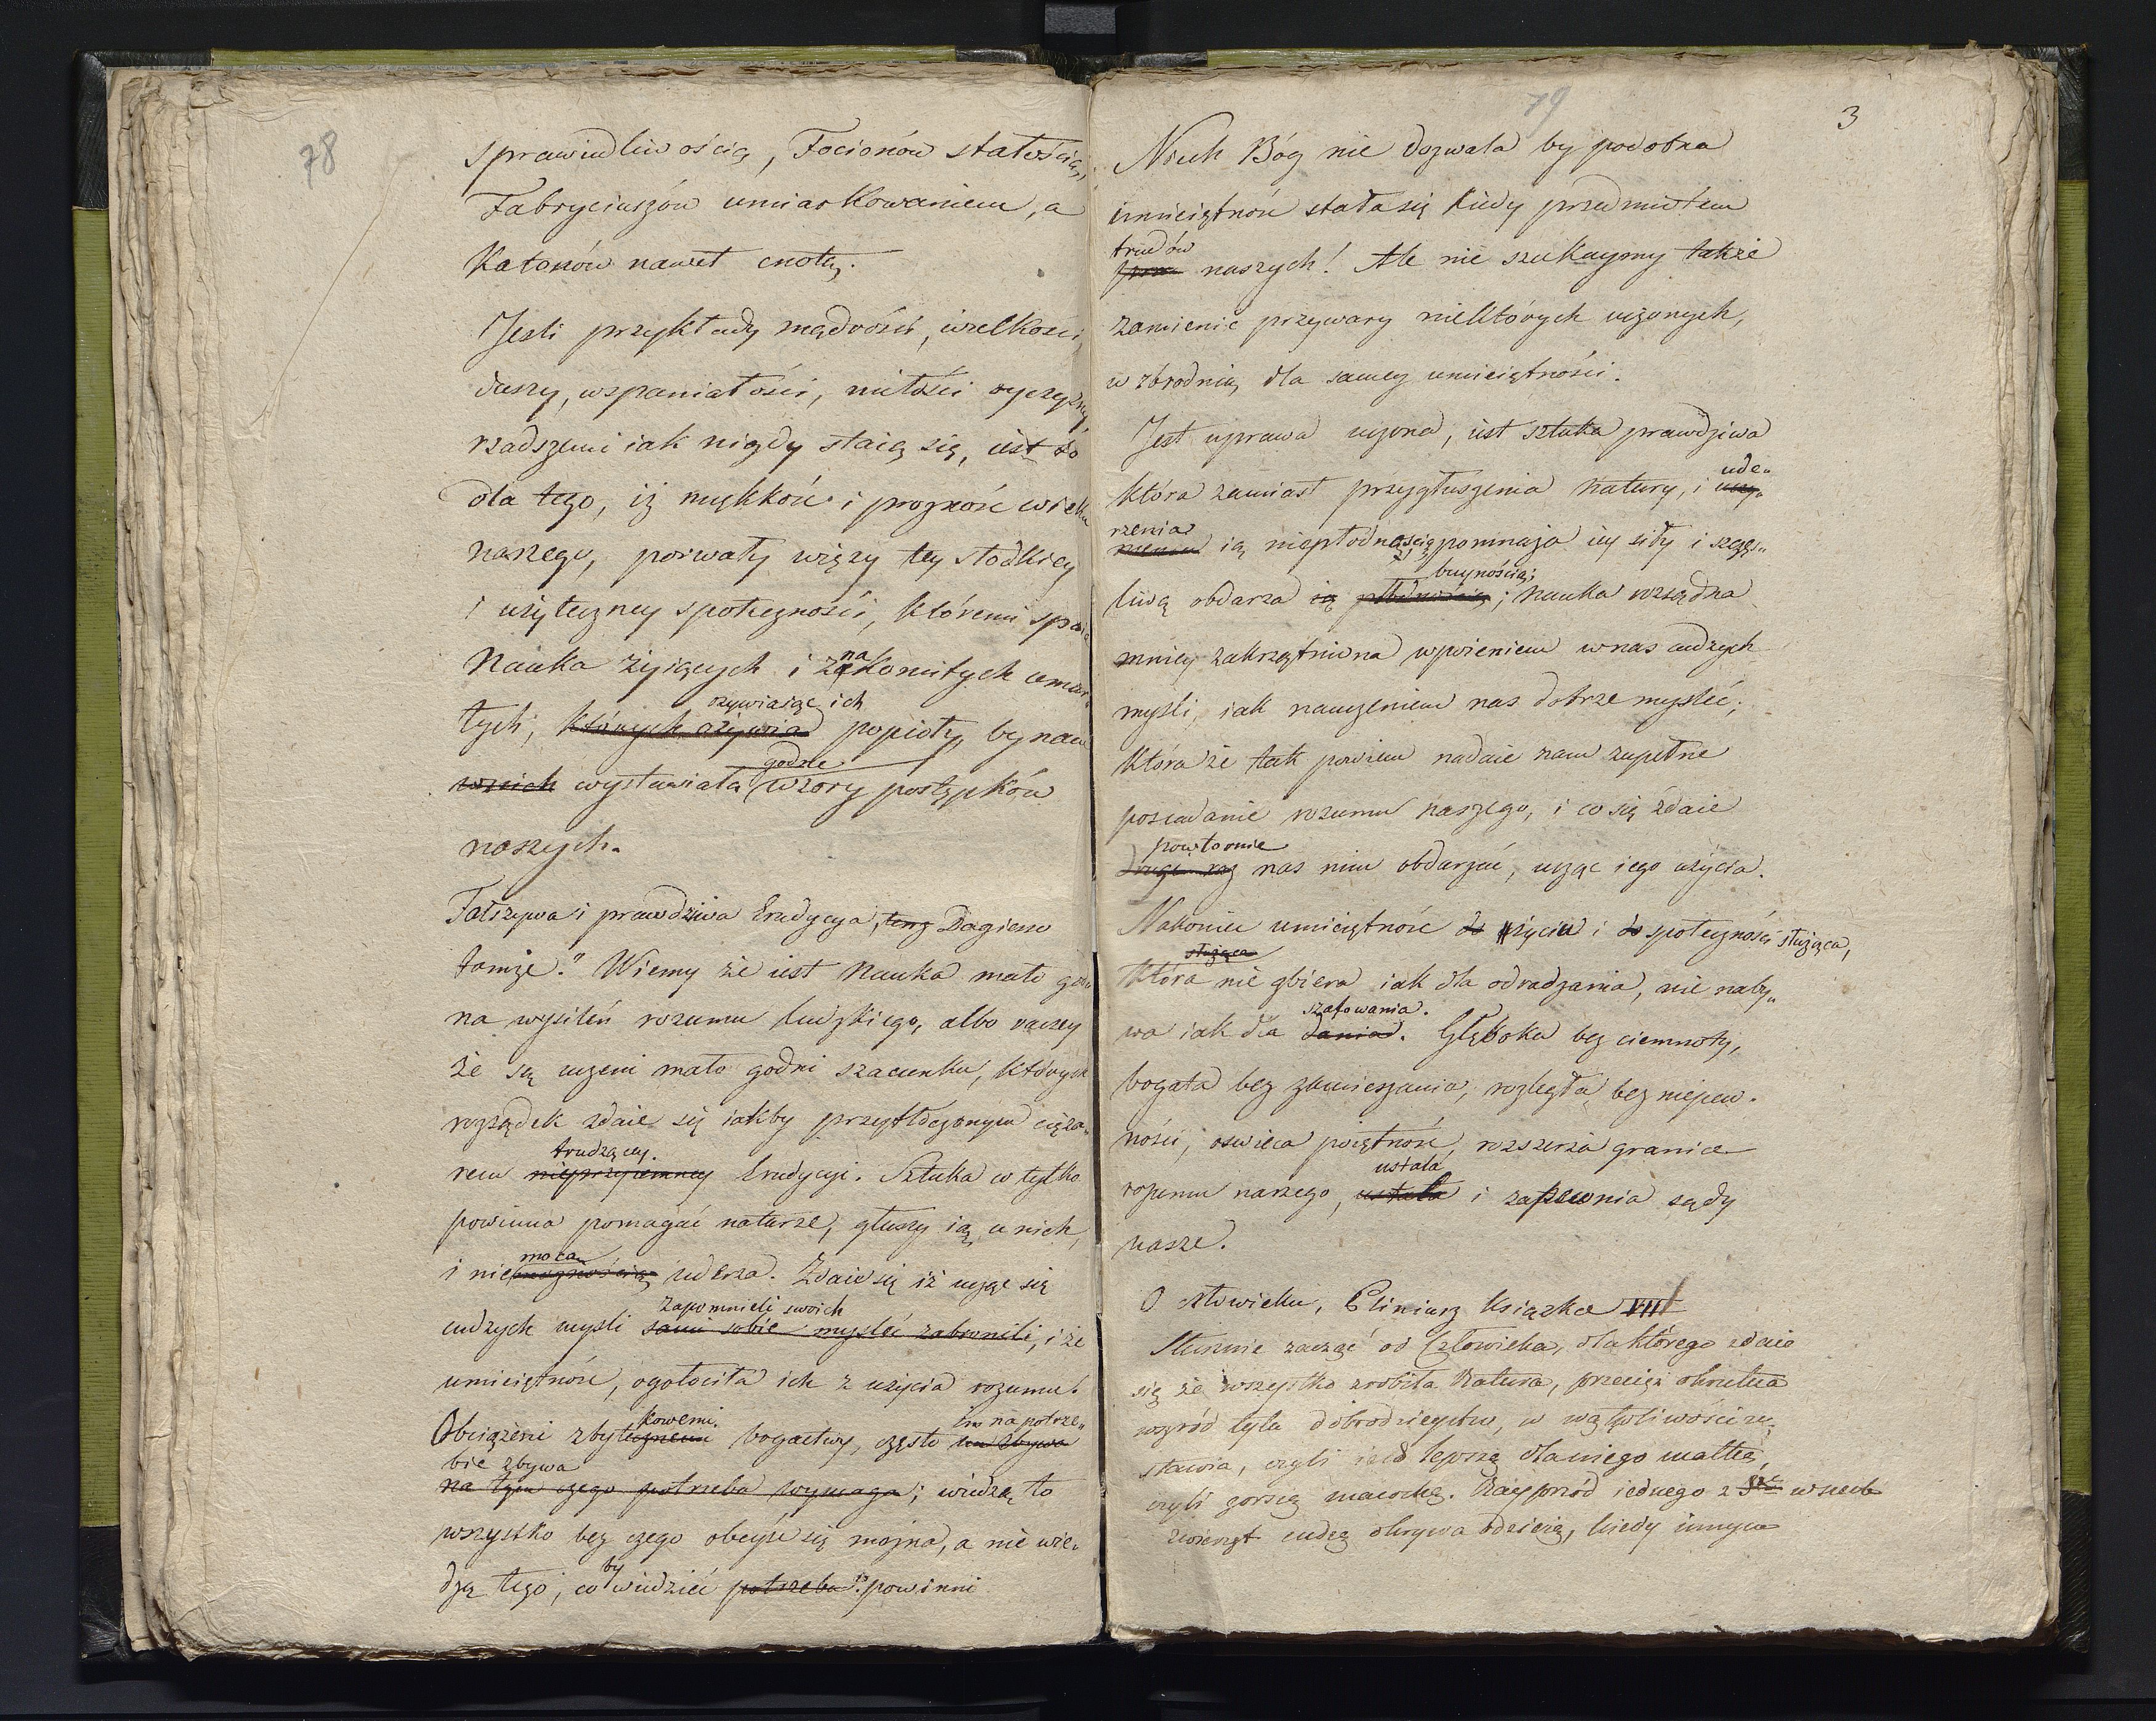 78
sprawiedliwością, Focionów stałością,
Fabryciuszów umiarkowaniem, a
Katonów nawet cnotą.
Jeśli przykłady mądrości, wielkości
duszy, wspaniałości, miłości oyczyzny
rzadszemi iak nigdy staią się, iest to
dla tego, iż miękkość i prożność wieku
naszego, porwały więzy tey słodkiey
i użyteczney społeczności, któremi spaia
Nauka żyiących i znakomitych umar
ożywiaiąc ich
łych, których ożywia popioły, by nam
godne
w nich wystawiała wzory postępków
naszych.
Fałszywa i prawdziwa Erudycya, tenż Dagiesso
tamże." Wiemy że iest Nauka mało god
na wysileń rozumu ludzkiego, albo raczey
że są uczeni mało godni szacunku, których
rozsądek zdaie się iakby przytłoczonym cięża„
trudzącey.
rem nieprzyiemney Erudycyi. Sztuka co tylko
powinna pomagać naturze, głuszy ią u nich,
moca
i nie uderza. Zdaie się iż ucząc się
zapomnieli swoich
cudzych myśli sami sobie myśleć zabronili, i że
umieiętność, ogołociła ich z użycia rozumu.
kowemi im na potrze„
Obciążeni zbytecznemi bogactwy, często im zbywa
bie zbywa
na tym czego potrzeba wymaga; wiedzą to
wszystko bez czego obeyść się można, a nie wie„
by
dzą tego, co wiedzieć potrzeba". powinni
79
3
Niech Bóg nie dozwala by podobna
umieiętność stała się kiedy przedmiotem
trudów
naszych! Ale nie szukaymy także
zamienić przywary niektórych uczonych,
w zbrodnią dla samey umieiętności.
Jest uprawa uczona, iest sztuka prawdziwa
ude„
która zamiast przygłuszenia Natury, i
rzenia
ią niepłodnością, pomnaża iey siły i szczęś„
buynością;
liwą obdarza ią płodnością; Nauka rozsądna
mniey zakrzętniona wpoieniem w nas cudzych
myśli, iak nauczeniem nas dobrze myśleć;
która że tak powiem nadaie nam zupełne
posiadanie rozumu naszego, i co się zdaie
powtornie
drugi raz nas nim obdarzać, ucząc iego użycia.
Nakoniec umieiętność do życia i do społeczności służąca,
służąca
która nie zbiera iak dla odradzania, nie naby„
szafowania.
wa iak dla dania. Głęboka bez ciemnoty,
bogata bez zamieszania, rozległa bez niepew.
ności, oswieca poiętność, rozszerza granice
ustala
rozumu naszego, ustala i zapewnia sądy
nasze.
O człowieku, Pliniusz Książka VII
Słusznie zacząć od Człowieka, dla którego zdaie
się że wszystko zrobiła Natura, przecięż okrutna
wśród tylu dobrodzieystw, w wątpliwości zo„
stawia, czyli iest lepszą dla niego matką,
czyli gorszą macochą. Nayprzod iednego z wszech
zwierząt cudzą okrywa odzieżą, kiedy innym